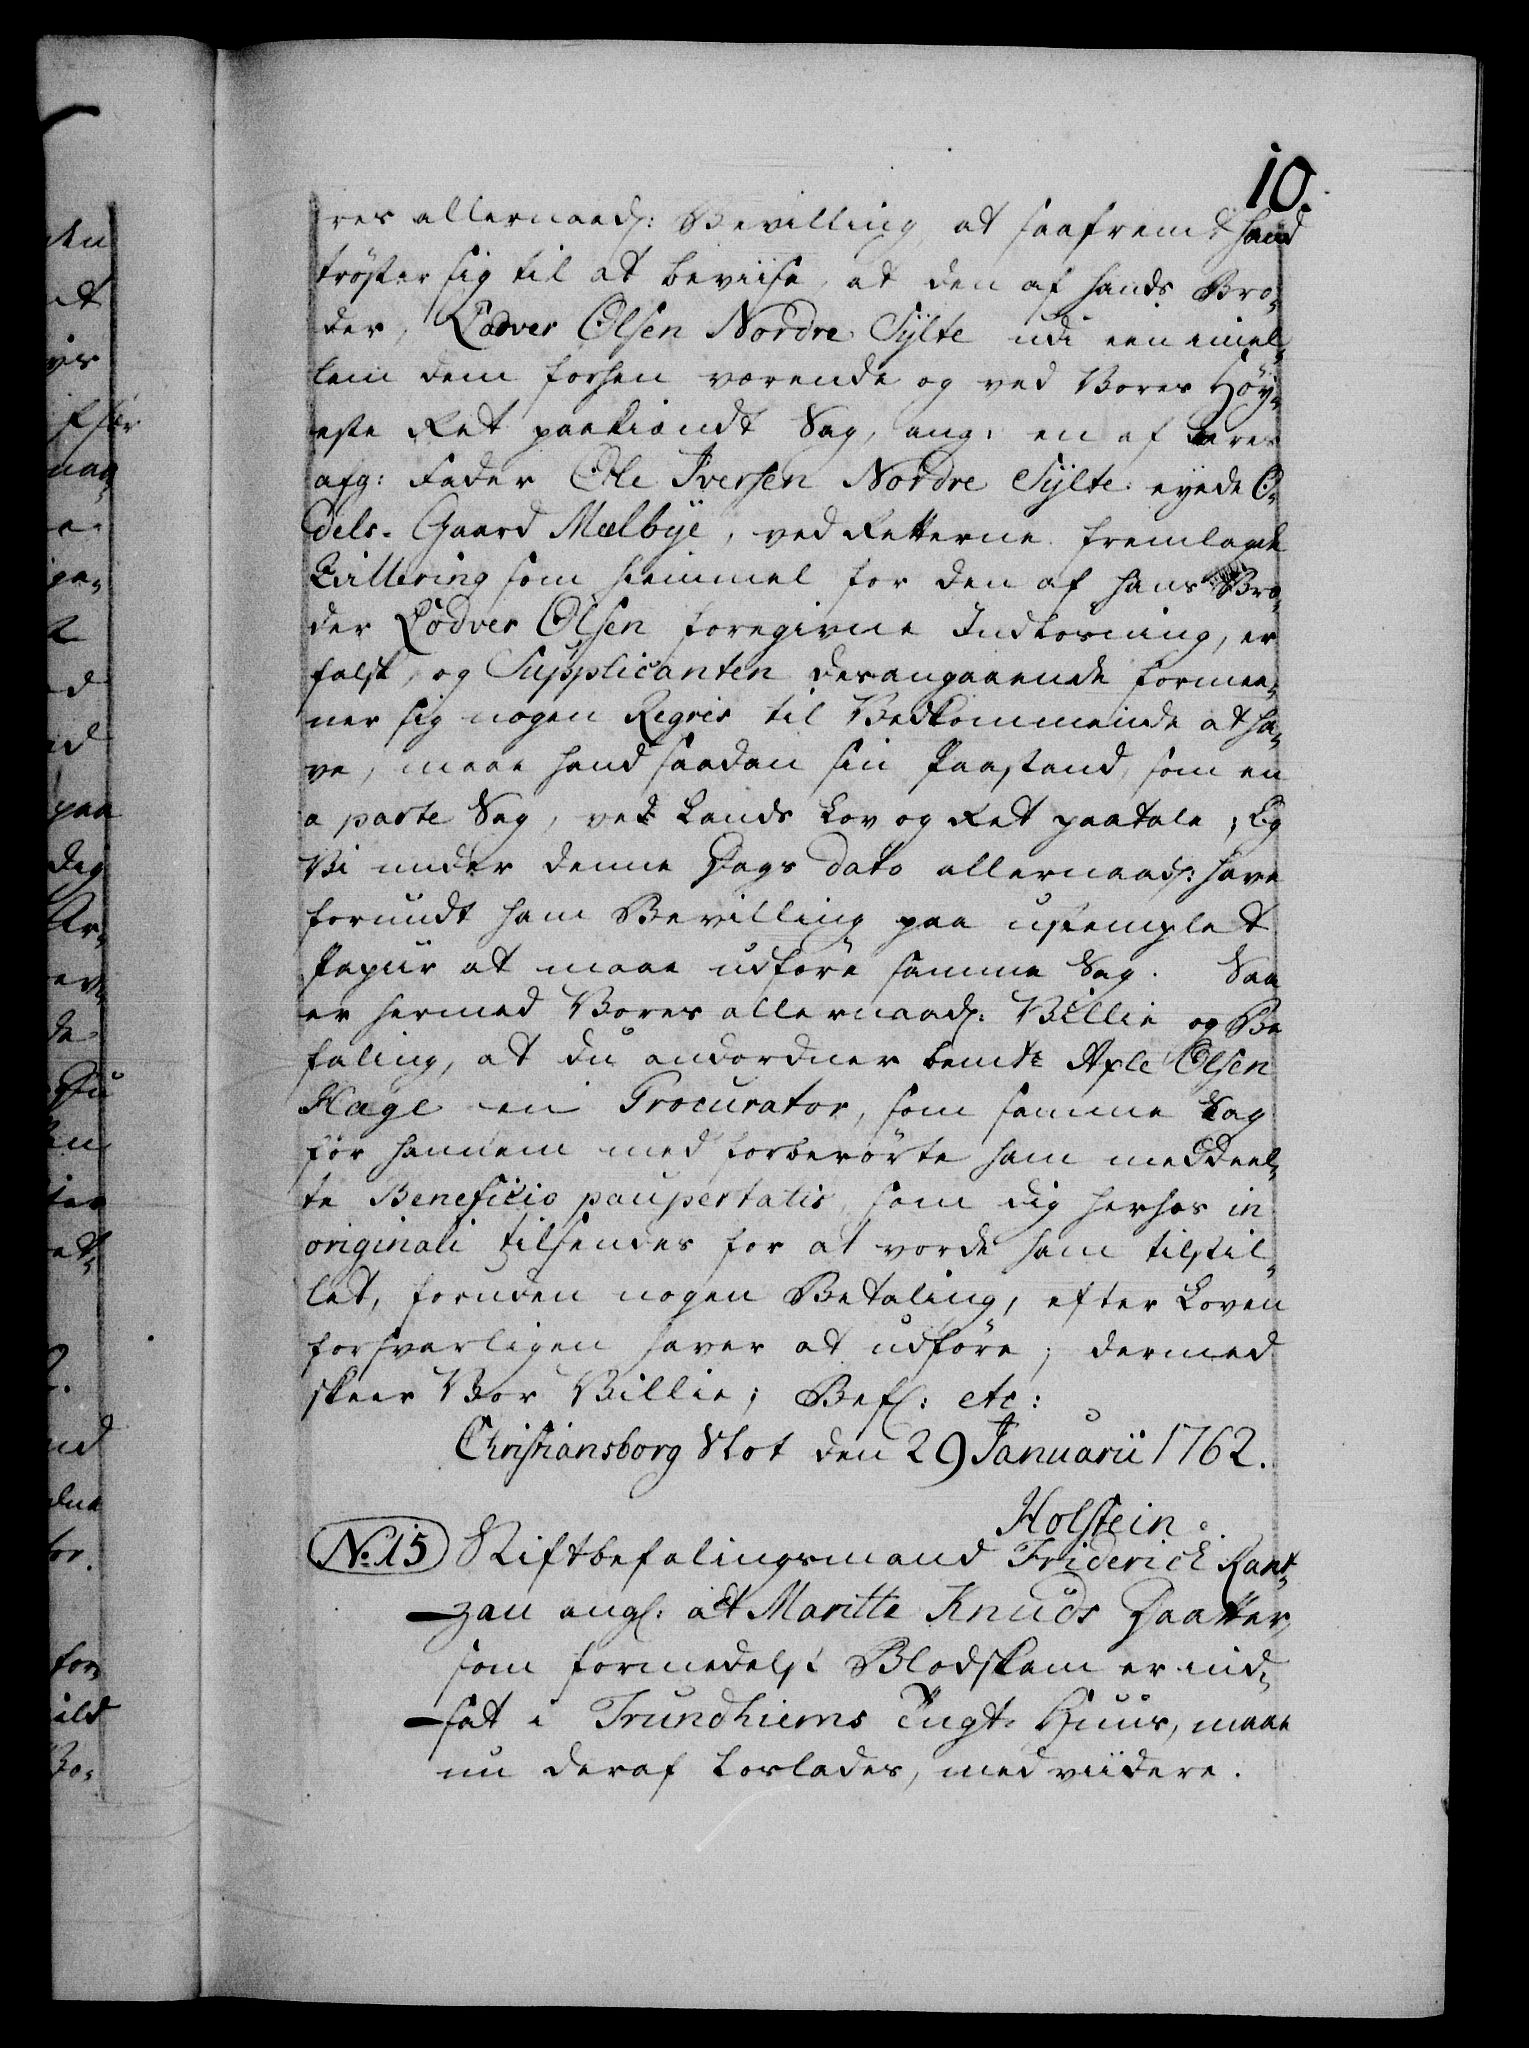 10.
res allernaad: Bevilling, at saafremt hand
tröster sig til at beviise, at den af hands Bro-
der, Lodver Olsen Nordre Sylte udi een imel-
lem dem forhen værende og ved Vores Höy-
este Ret paakiændt Sag, ang: en af deres
afg: Fader Ole Iversen Nordre Sylte eyede O-
dels-Gaard Mælbye, ved Retterne fremlagde
Qvittering som hiemmel for den af hans Bro-
der Lodver Olsen foregivne Indlösning, er
falsk, og Supplicanten desangaaende formee-
ner sig nogen Regres til Vedkommende at ha-
ve, maae hand saadan sin Paastand, som en
a parte Sag, ved Lands Lov og Ret paatale; Og
Vi under denne Dags dato allernaad: have
forundt ham Bevilling paa ustemplet
Papiir at maae udföre samme Sag. Saa
er hermed Vores allernaad: Villie og Be
faling, at du anordner bemte Axle Olsen
Hage en Procurator, som samme Sag
for hannem med forberörte ham meddeel-
te Beneficio paupertatis, som dig herhos in
originali tilsendes for at vorde ham tilstil-
let, foruden nogen Betaling, efter Loven
forsvarligen haver at udföre; dermed
skeer Vor Villie; Bef: etc:
Christiansborg Slot den 29 Januarii 1762.
Holstein
No. 15 Stiftbefalingsmand Friderich Rant-
zau angl: at Maritte Knuds Daatter,
som formedelst Blodskam er ind-
sat i Trundhiems Tugt-Huus, maae
nu deraf loslades, med viidere.